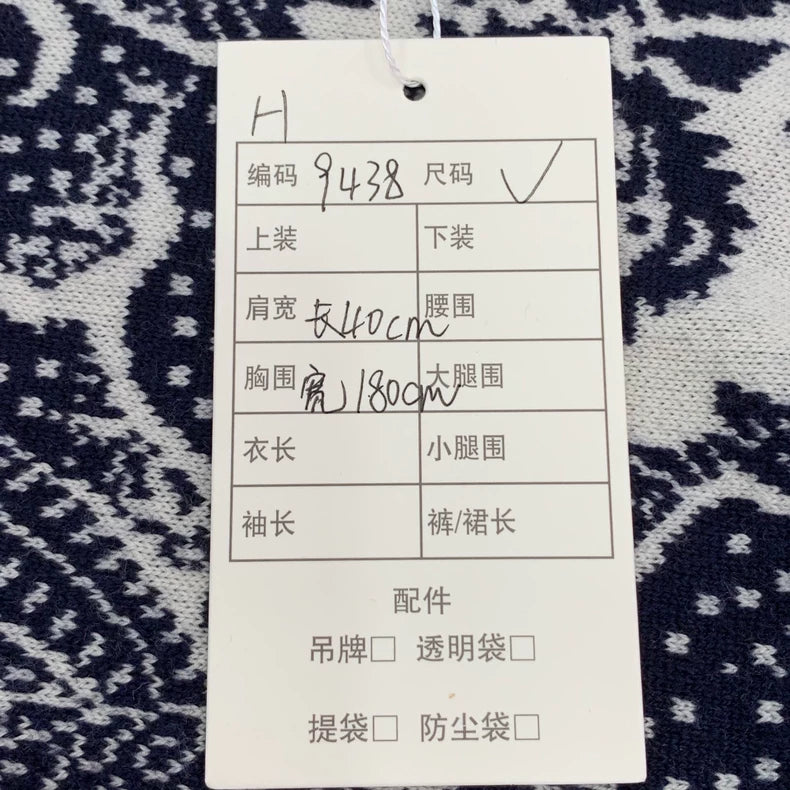 H
编码 9438 尺码 ✓
上装 下装
肩宽 长40cm 腰围
胸围 宽180cm 大腿围
衣长 小腿围
袖长 裤/裙长
配件
吊牌□ 透明袋□
提袋□ 防尘袋□